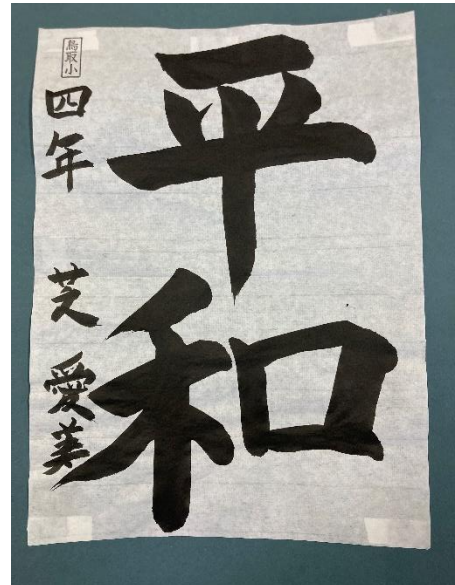 平和
鳥取小
四年 芝 愛美